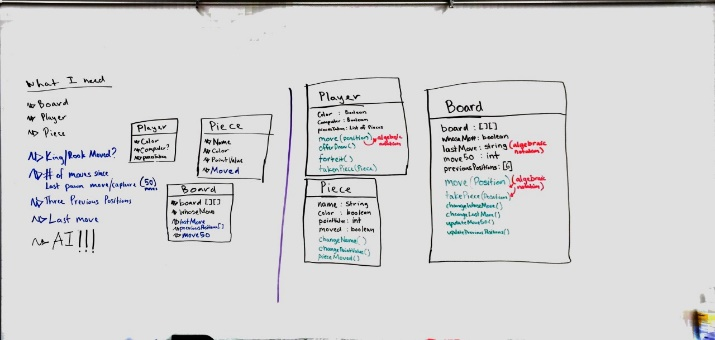 What I need
Board
Player
Piece
King/Rook Moved?
# of moves since
Last pawn move/capture (50)
Three Previous Positions
Last move
AI!!!
Player
Color
Computer?
Piece
Name
Color
Point Value
Moved
Board
board [][]
whoseMove
lastMove
previousPositions[]
move50
Player
Color : Boolean
Computer : Boolean
piecesTaken : List of Pieces
move(position) algebraic notation
offerDraw()
forfeit()
takenPiece(Piece)
Piece
name : String
color : boolean
pointValue : int
moved : boolean
changeName()
changePointValue()
pieceMoved()
Board
board : [][]
whoseMove : boolean
lastMove : string (algebraic notation)
move50 : int
previousPositions : [6]
move(Position) (algebraic notation)
takePiece(Position)
changeWhoseMove()
changeLastMove()
updateMove50()
updatePreviousPositions()